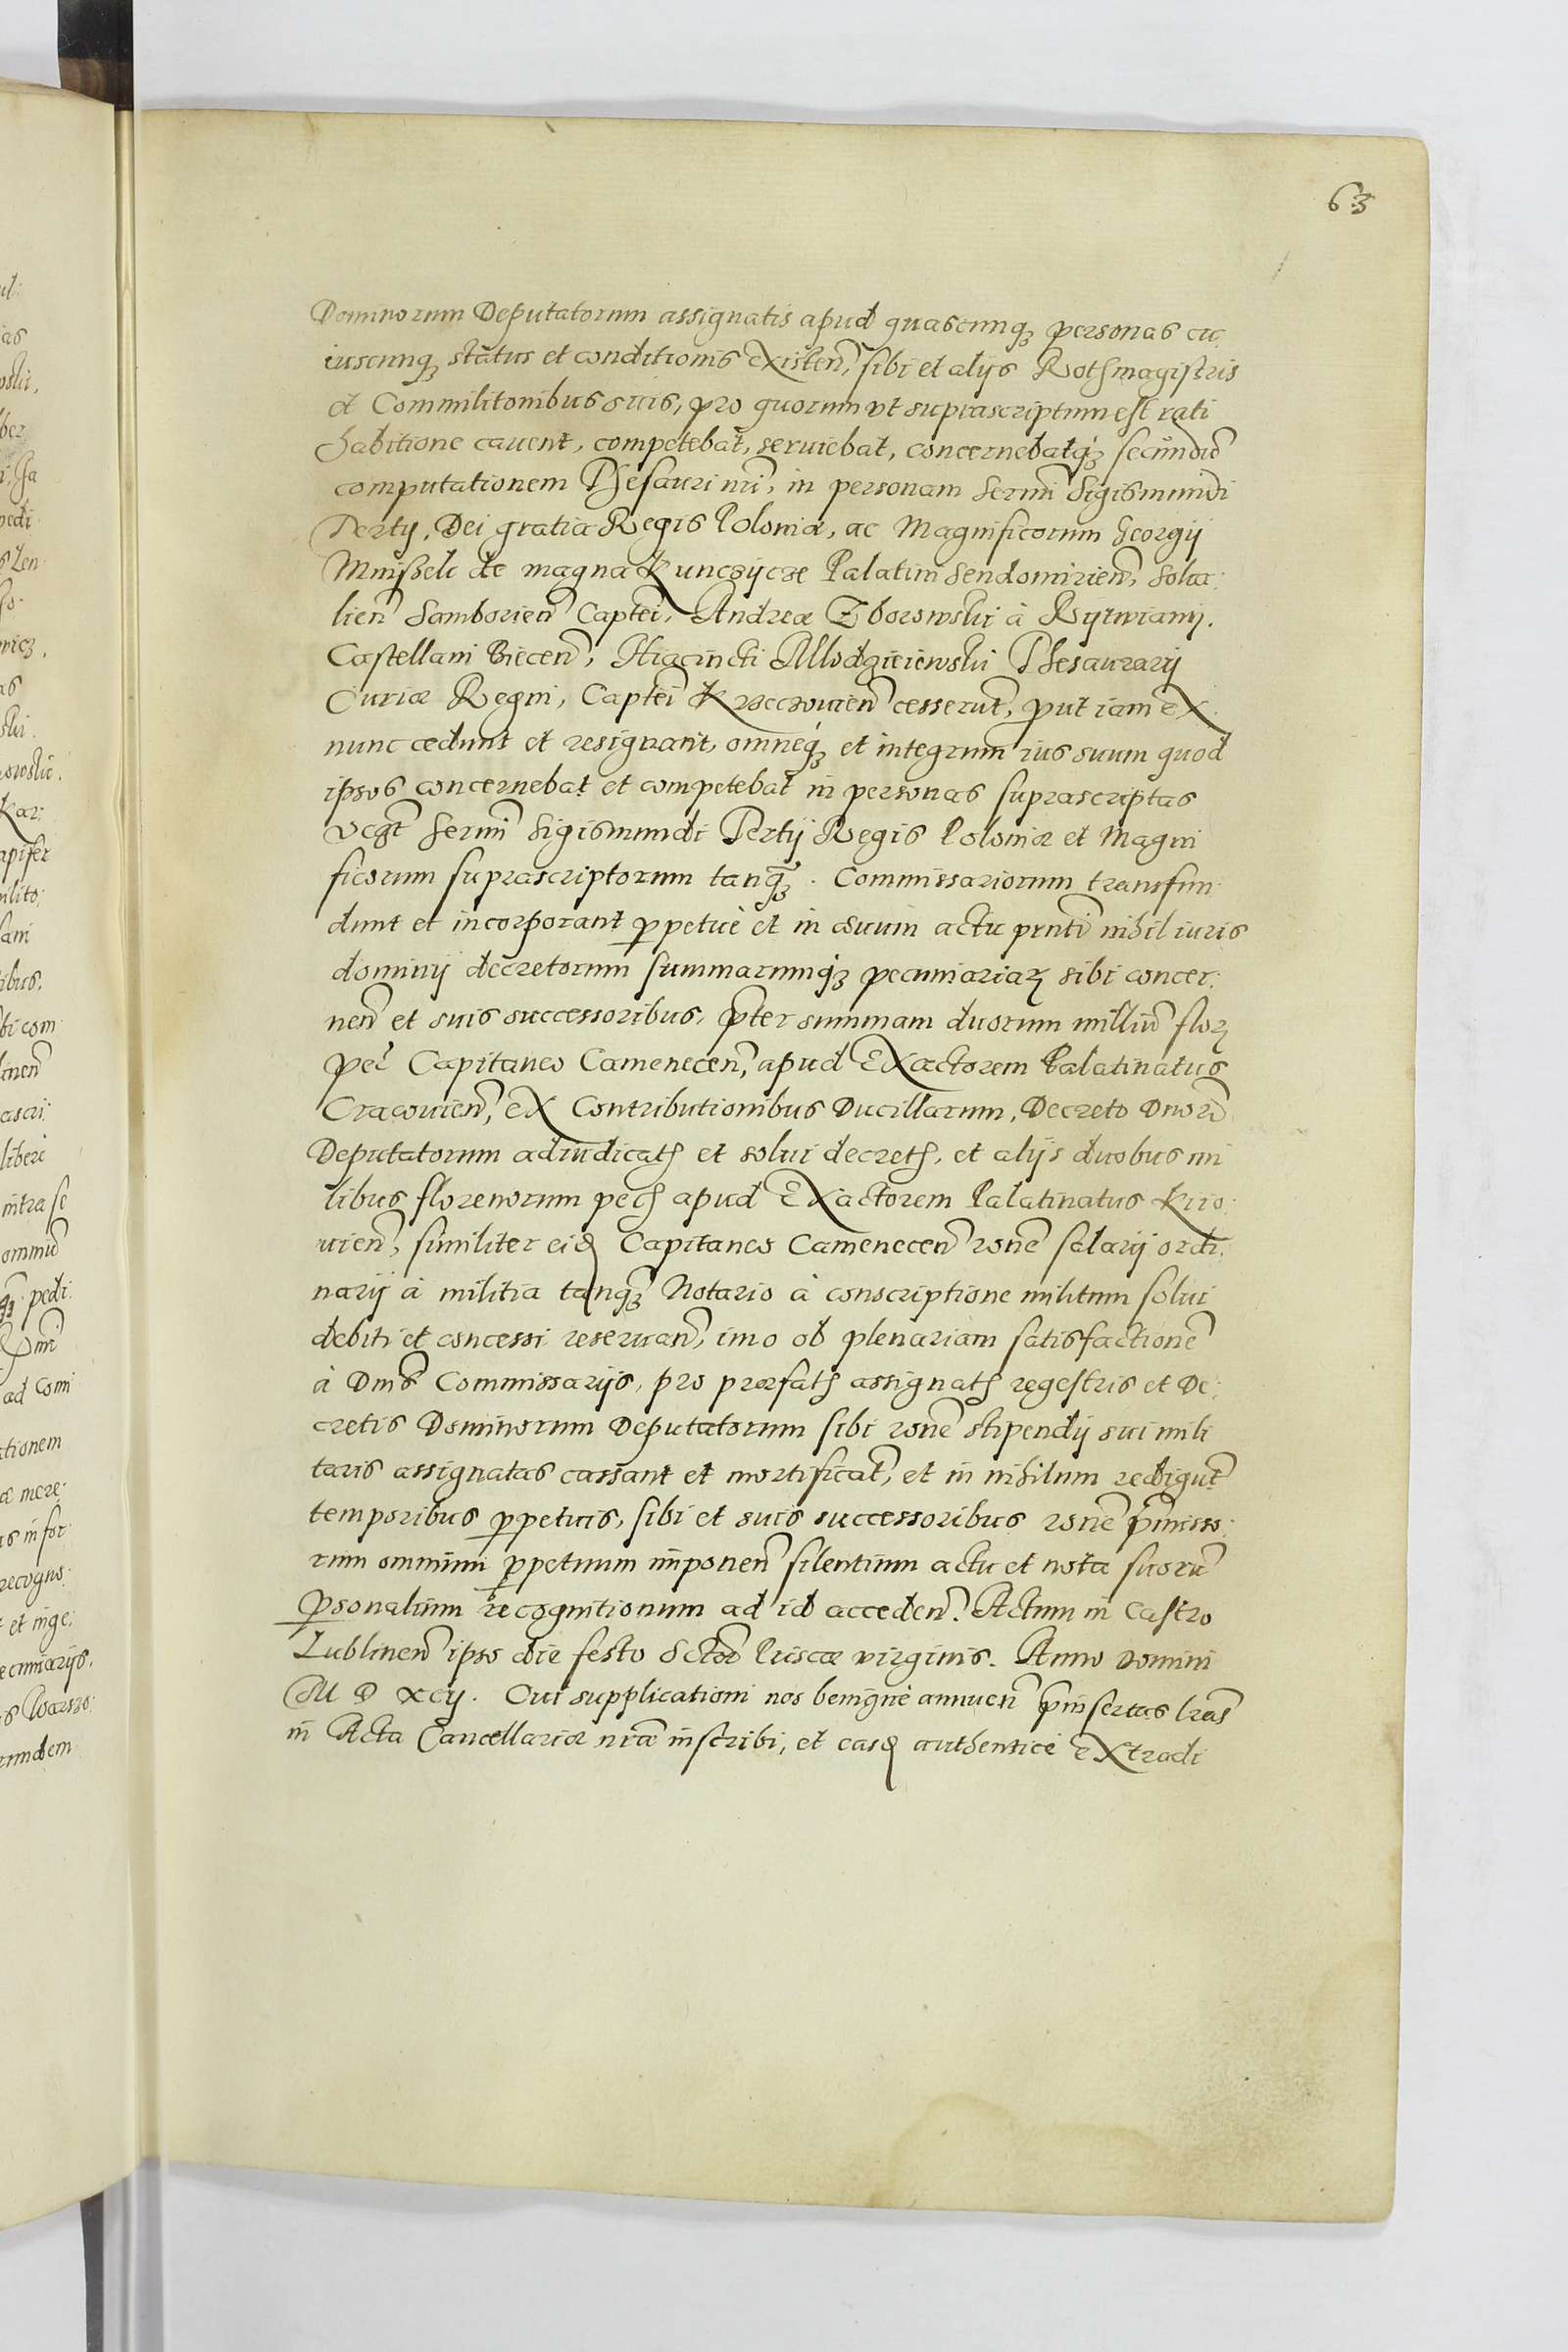 63
Dominorum Deputatorum assignatis apud quascunq₃ personas cu
iuscunq₃ status et conditionis existen̄, sibi et alijs Rothmagistris
et Commilitonibus suis, pro quorum vt suprascriptum est rati
habitione cauent, competebat, seruiebat, concernebatq₃ secundū
computationem Thesauri nr̄i, in personam Serm̄i Sigismundi
Tertij, Dei gratia Regis Poloniæ, ac Magnificorum Georgij
Mnishek de magna Kunczycze Palatini Sendomirien̄, Socha:
lien̄ Samborien̄ Captei, Andreæ Zborowski à Rytwiany.
Castellani Biecen̄, Hiacincti Mlodzieiewski Thesaurarij
Curiæ Regni, Captei Krzeczouien̄ cesserūt, put iam ex
nunc cedunt et resignant, omneq₃ et integrum ius suum quod
ipsos concernebat et competebat in personas suprascriptas
vc₃t Serm̄i Sigismundi Tertij Regis Poloniæ et Magni
ficorum suprascriptorum tanq₃. Commissariorum transfun
dunt et incorporant ppetuè et in æuum actu pn̄ti nihil iuris
dominij decretorum summarumq₃ pecuniariaꝝ sibi concer:
nen̄ et suis successoribus, pter summam duorum milliū floꝝ
pec̄ Capitaneo Camenecen̄, apud Exactorem Palatinatus
Cracouien̄, ex Contributionibus Ducillarum, Decreto Dnorū
Deputatorum adiudicatꝭ et solui decretꝭ, et alijs duobus mi
libus florenorum pecꝭ apud Exactorem Palatinatus Kiio:
uien̄, similiter eid Capitaneo Camenecen̄ rōne salarij ordi:
narij à militia tanq₃ Notario à conscriptione militum solui
debiti et concessi reseruan̄, imo ob plenariam satisfactionē
à Dnis Commissarijs, pro præfatꝭ assignatꝭ regestris et De:
cretis Dominorum Deputatorum sibi rōne stipendij sui mili
taris assignatas cassant et mortificāt, et in nihilum redigūt
temporibus ppetuis, sibi et suis successoribus rōne pmisso:
rum omnium ppetuum imponen̄ silentium actu et nota suorū
psonalium recognitionum ad id acceden̄. Actum in Castro
Lublinen̄ ipso die festo Sctæ Priscæ virginis. Anno Domini
M D xcij. Cui supplicationi nos benignè annuen̄ pinsertas lras
in Acta Cancellariæ nr̄æ inscribi, et easd authenticè extradi